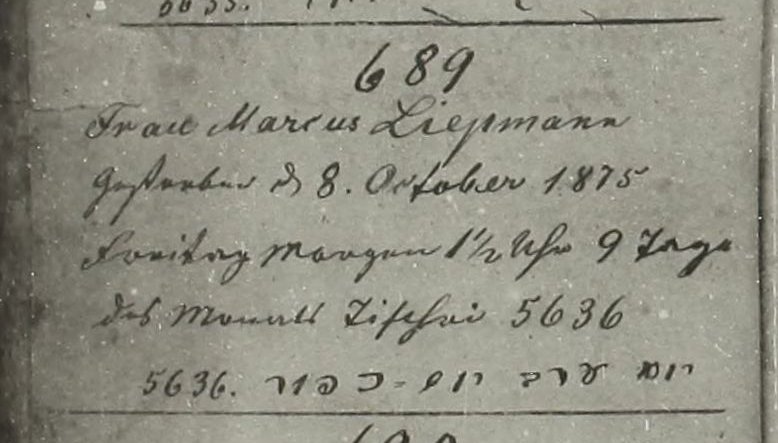 689
Frau Marcus Liepmann
Gestorben d 8. October 1875
Freitag Morgen 1 1/2 Uhr 9 Tage
des Monats Tischri 5636
יום ערב יום-כפור 5636.